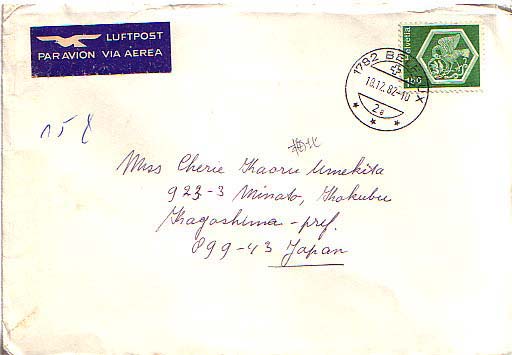 LUFTPOST
PAR AVION VIA AEREA
helvetia
150
1792
18.12.82-10
2a
15 g
Miss Cherie Kaoru Umekita
923-3 Minato, Kokubu
Kagoshima-pref.
899-43 Japan